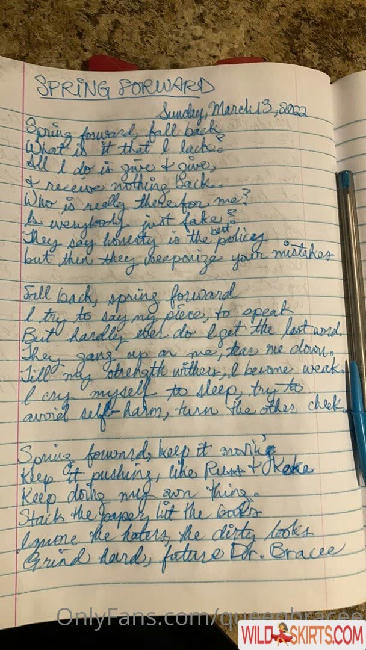 SPRING FORWARD
Sunday, March 13, 2022
Spring forward, fall back
What is it that I lack?
All I do is give & give,
& receive nothing back.
Who is really there for me?
Is everybody just fake?
They say honesty is the best policy
but then they weaponize your mistakes
Fall back, spring forward
I try to say my piece, so to speak
But hardly ever do I get the last word.
They gang up on me, tear me down,
Till my strength withers, I become weak.
I cry myself to sleep, try to
avoid self-harm, turn the other cheek.
Spring forward, keep it movin'
Keep it pushing, like Russ & Keke
Keep doing my own thing.
Stack the paper, hit the books
Ignore the haters, the dirty looks
Grind hard, future Dr. Bracee
OnlyFans.com/
WILDSKIRTS.COM